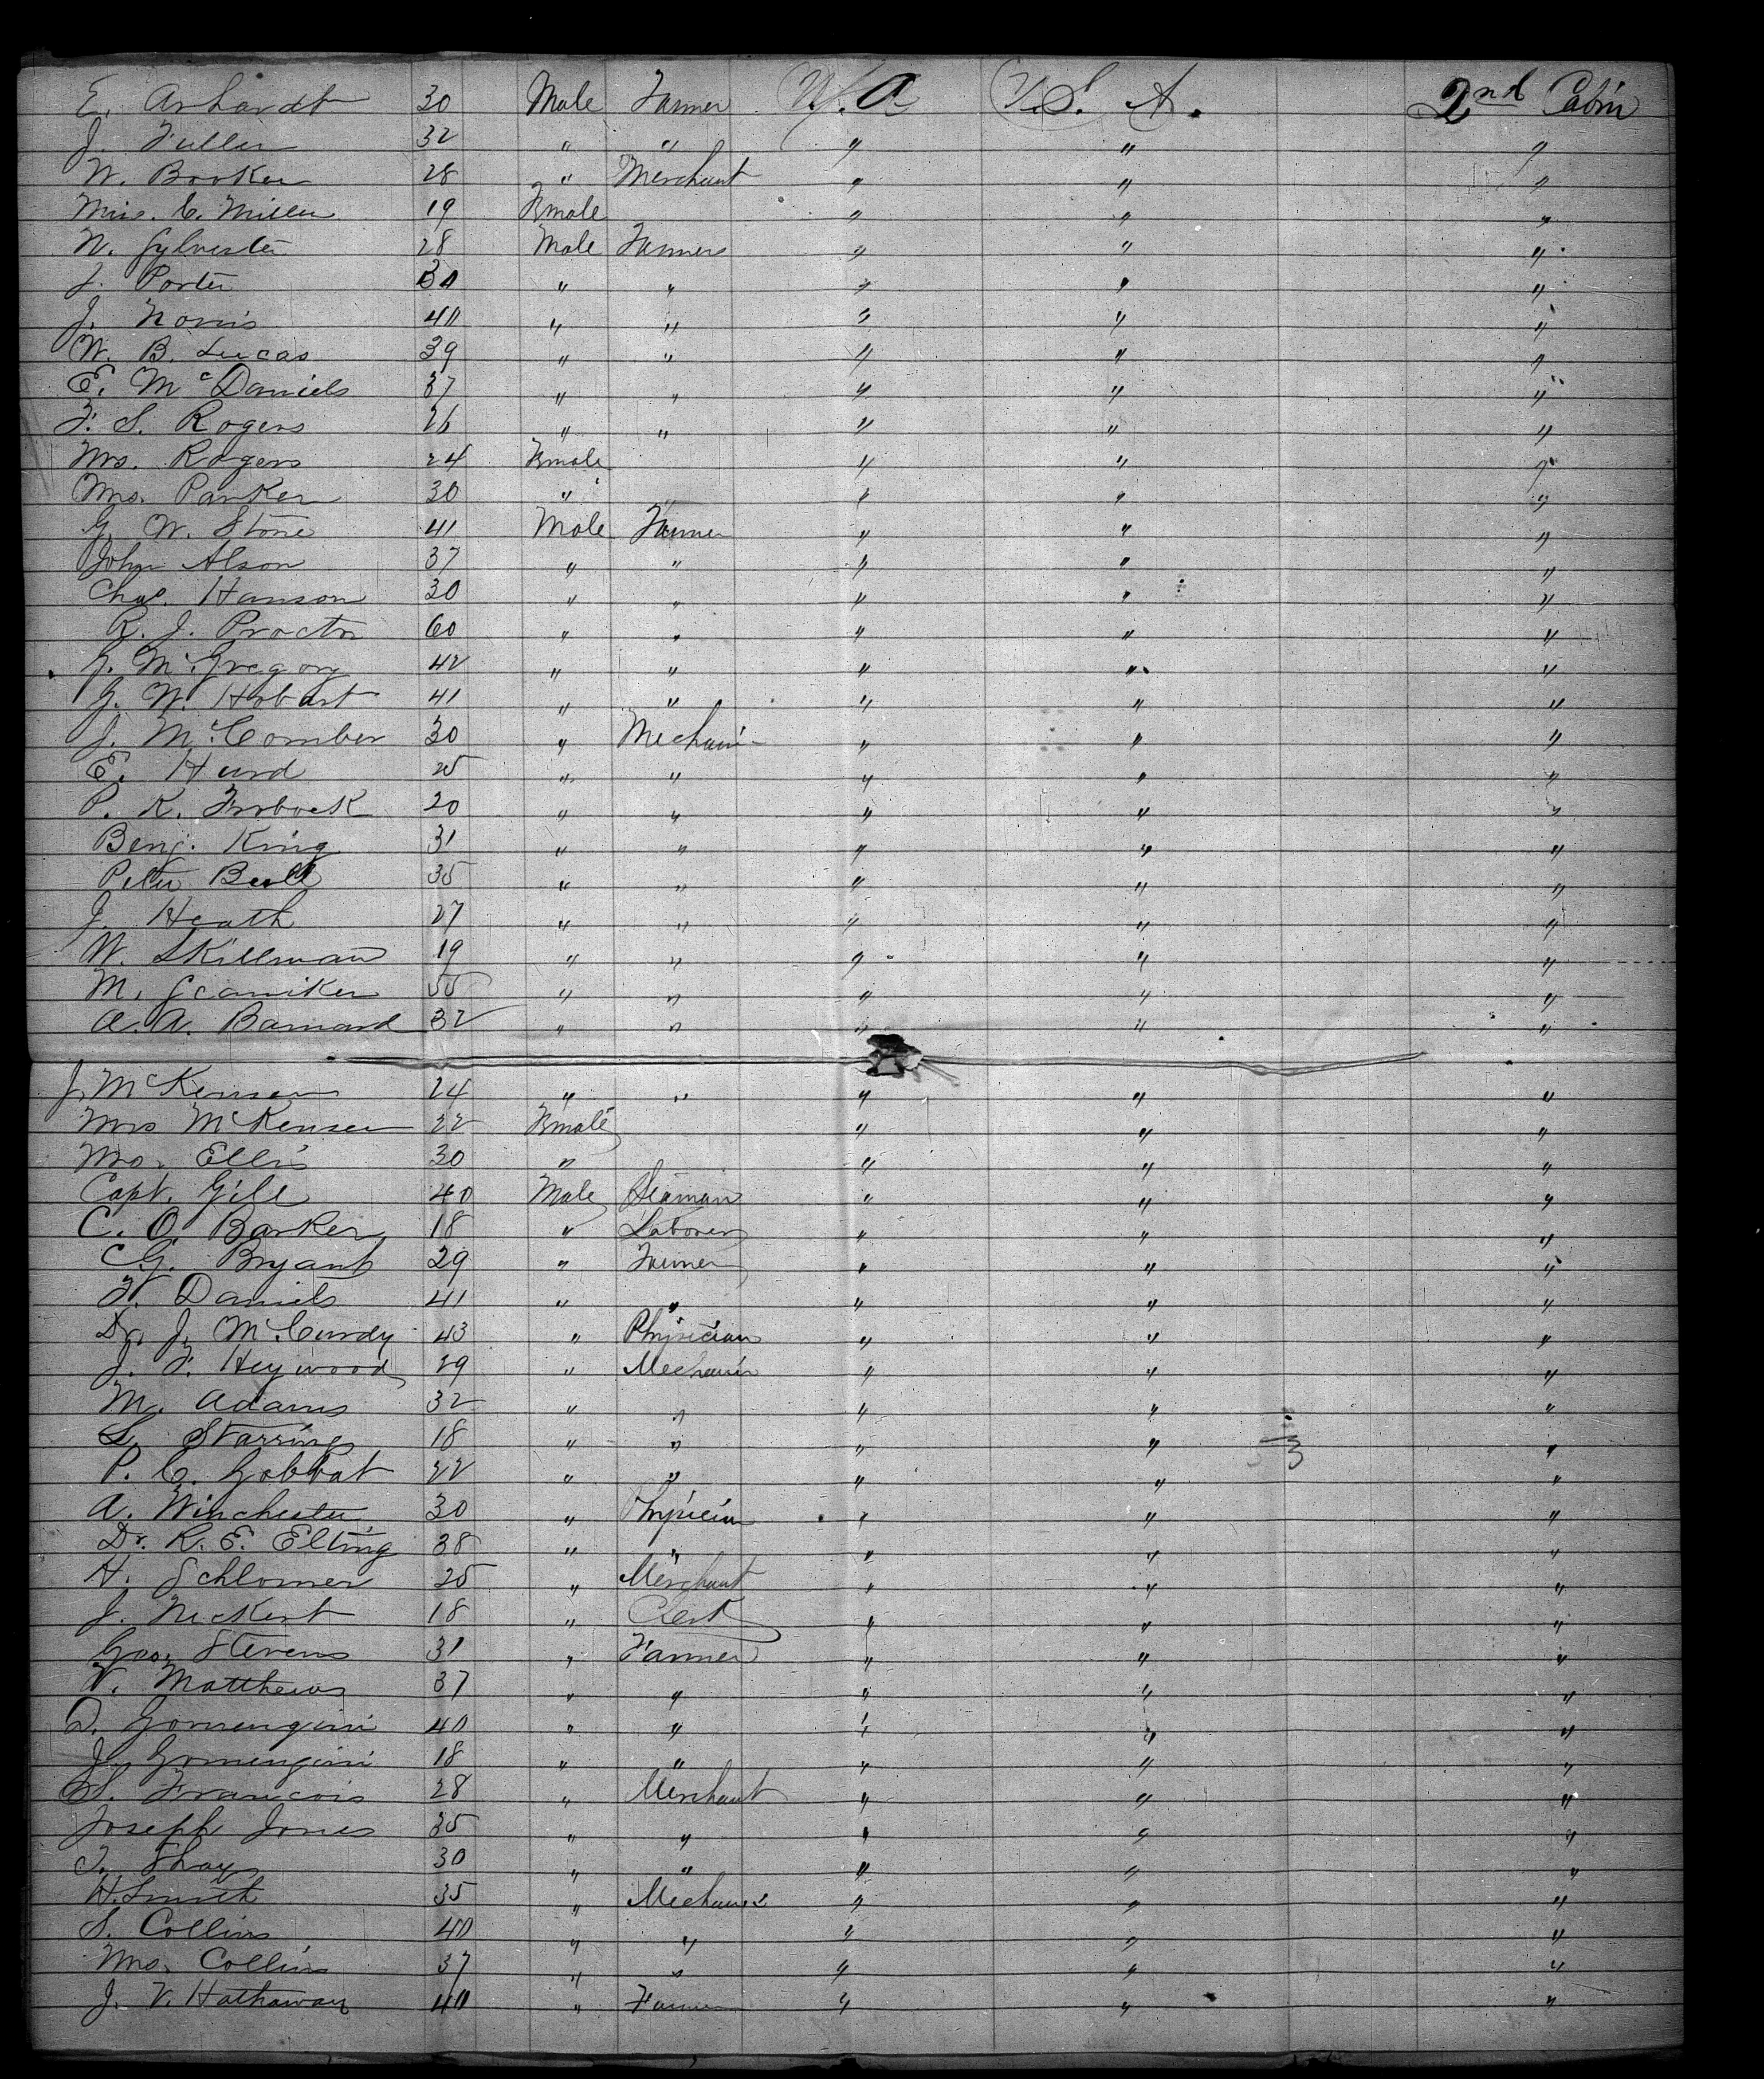 E. Arhardt 30 Male Farmer U.S.A. 2nd Cabin
J. Fuller 32 " " " " "
W. Booker 28 " Merchant " " "
Miss. C. Miller 19 Female " " "
N. Sylvester 28 Male Farmer " " "
J. Porter 30 " " " " "
J. Norris 40 " " " " "
W. B. Lucas 39 " " " " "
E. McDaniels 37 " " " " "
F. S. Rogers 26 " " " " "
Mrs. Rogers 24 Female " " "
Mrs. Parker 30 " " " "
G. W. Stone 41 Male Farmer " " "
John Alson 37 " " " " "
Chas. Hanson 30 " " " " "
R. J. Proctor 60 " " " " "
G. McGregory 42 " " " " "
G. W. Hobart 41 " " " " "
J. McComber 30 " Mechanic " " "
E. Hurd 25 " " " " "
P. K. 20 " " " " "
Benj. King 31 " " " " "
Peter Bell 35 " " " " "
J. Heath 27 " " " " "
W. Skillman 19 " " " " "
M. 55 " " " " "
A. A. Barnard 32 " " " " "
J. McKensen 24 " " " " "
Mrs McKensen 22 Female " " "
Mrs. Ellis 30 " " " "
Capt. Gill 40 Male Seaman " " "
C. O. Barker 18 " Laborer " " "
C. G. Bryant 29 " Farmer " " "
F. Daniels 41 " " " " "
Dr. J. McCurdy 43 " Physician " " "
J. F. Heywood 29 " Mechanic " " "
M. Adams 32 " " " " "
L. Starrings 18 " " " " "
P. C. Gobbat 22 " " " " "
A. Winchester 30 " Physician " " "
Dr. R. E. Elting 38 " " " " "
H. Schlomer 25 " Merchant " " "
J. 18 " Clerk " " "
Geo. Stevens 31 " Farmer " " "
V. Matthews 37 " " " " "
D. 40 " " " " "
J. 18 " " " " "
S. Francois 28 " Merchant " " "
Joseph Jones 35 " " " " "
T. Shay 30 " " " " "
H. Smith 35 " Mechanic " " "
S. Collins 40 " " " " "
Mrs. Collins 37 " " " " "
J. V. Hathaway 40 " Farmer " " "